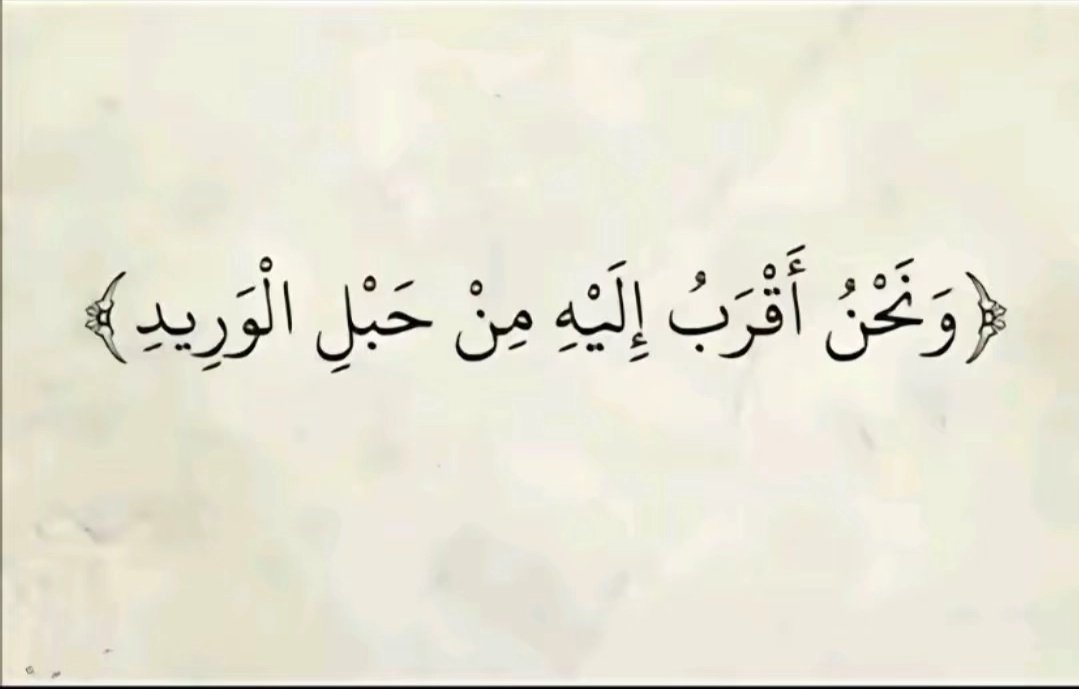 ﴿وَنَحْنُ أَقْرَبُ إِلَيْهِ مِنْ حَبْلِ الْوَرِيدِ﴾